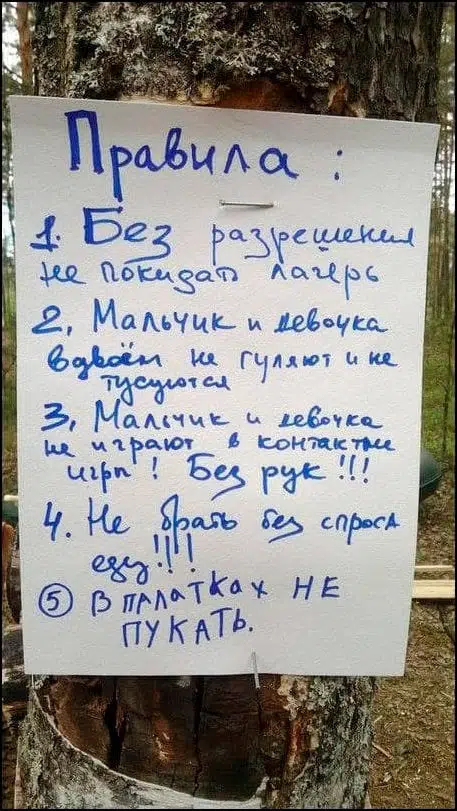 Правила :
1. Без разрешения
не покидать лагерь
2, Мальчик и девочка
вдвоём не гуляют и не
тусуются
3, Мальчик и девочка
не играют в контактные
игры ! Без рук !!!
4. Не брать без спроса
еду !!!
5 В ПАЛАТКАХ НЕ
ПУКАТЬ.